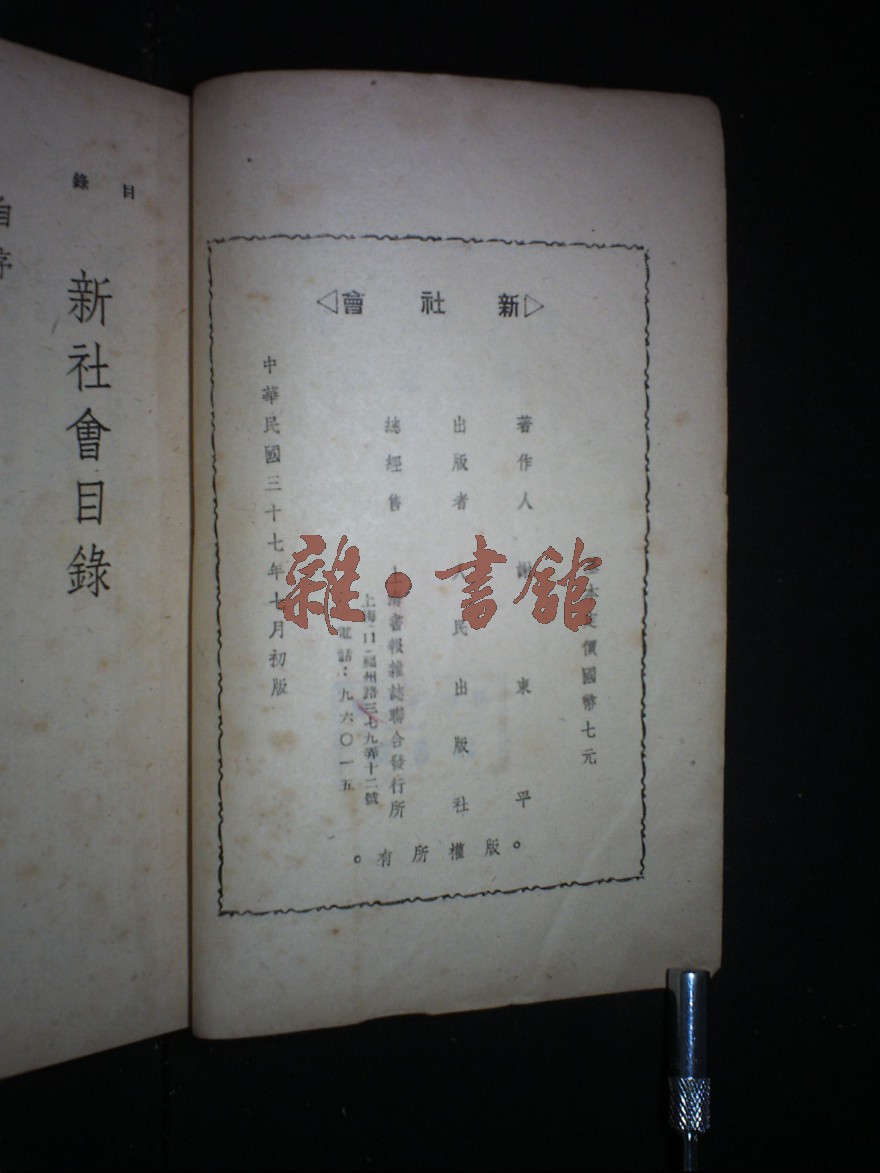 ▷新社會◁
基本定價國幣七元
著作人 謝東平
出版者 人民出版社
總經售 上海書報雜誌聯合發行所
上海(11)福州路三七九弄十二號
電話：九六〇一五
中華民國三十七年十月初版
。版權所有。
目錄
新社會目錄
自序
雜·書館